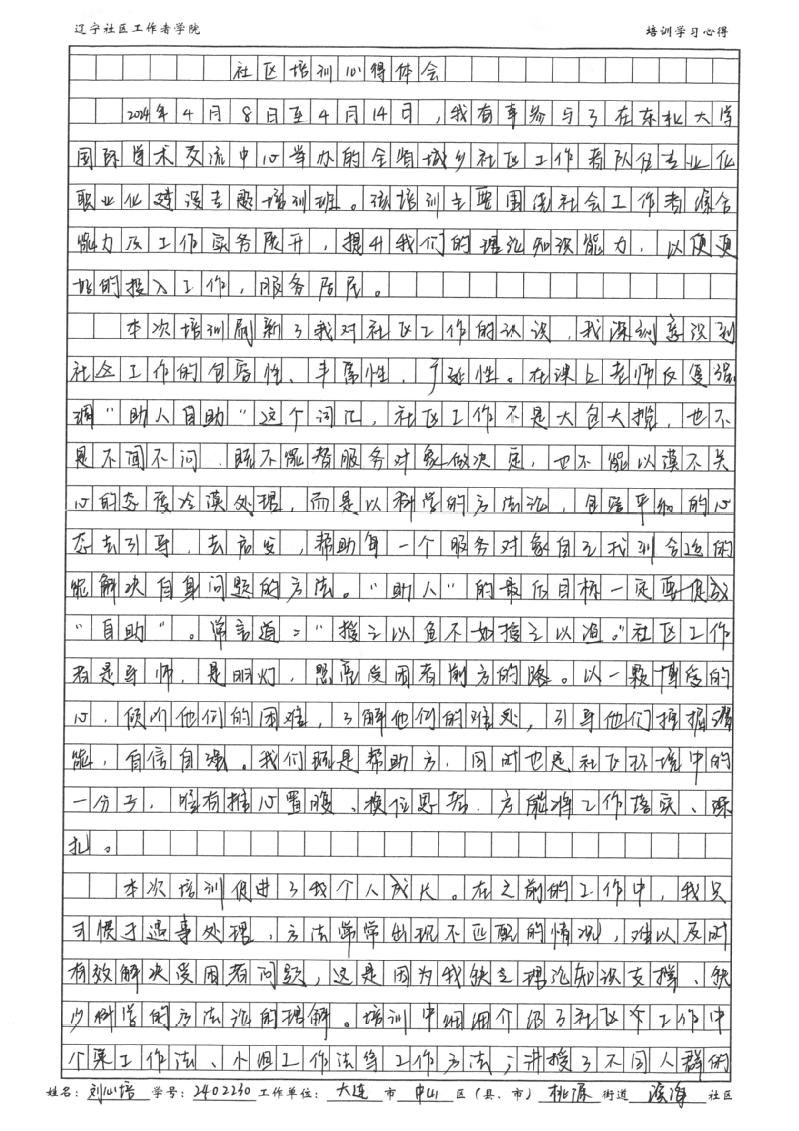 辽宁社区工作者学院 培训学习心得
社区培训心得体会
2024年4月8日至4月14日,我有幸参与了在东北大学
国际学术交流中心举办的全省城乡社区工作者队伍专业化
职业化建设专题培训班。该培训主要围绕社会工作者综合
能力及工作实务展开,提升我们的理论知识能力,以便更
好的投入工作,服务居民。
本次培训刷新了我对社区工作的认识,我深刻意识到
社区工作的包容性、丰富性,广延性。在课上老师反复强
调“助人自助”这个词汇,社区工作不是大包大揽,也不
是不闻不问,既不能替服务对象做决定,也不能以漠不关
心的态度冷漠处理,而是以科学的方法论,包容平和的心
态去引导,去启发,帮助每一个服务对象自主找到合适的
能解决自身问题的方法。“助人”的最后目标一定要使被
“自助”。常言道:“授之以鱼不如授之以渔。”社区工作
者是导师,是明灯,照亮受困者前方的路。以一颗博爱的
心,倾听他们的困难,了解他们的难处,引导他们挖掘潜
能,自信自强。我们既是帮助方,同时也是社区环境中的
一分子,唯有推心置腹、换位思考,方能将工作落实、深
扎。
本次培训促进了我个人成长。在之前的工作中,我只
习惯于遇事处理,方法常常出现不匹配的情况,难以及时
有效解决受困者问题,这是因为我缺乏理论知识支撑、缺
少科学的方法论的理解。培训中细细介绍了社区个工作中
个案工作法、小组工作法等工作方法;讲授了不同人群的
姓名:刘心培 学号:2402230 工作单位:大连 市 中山 区(县、市)桃源 街道 滨海 社区